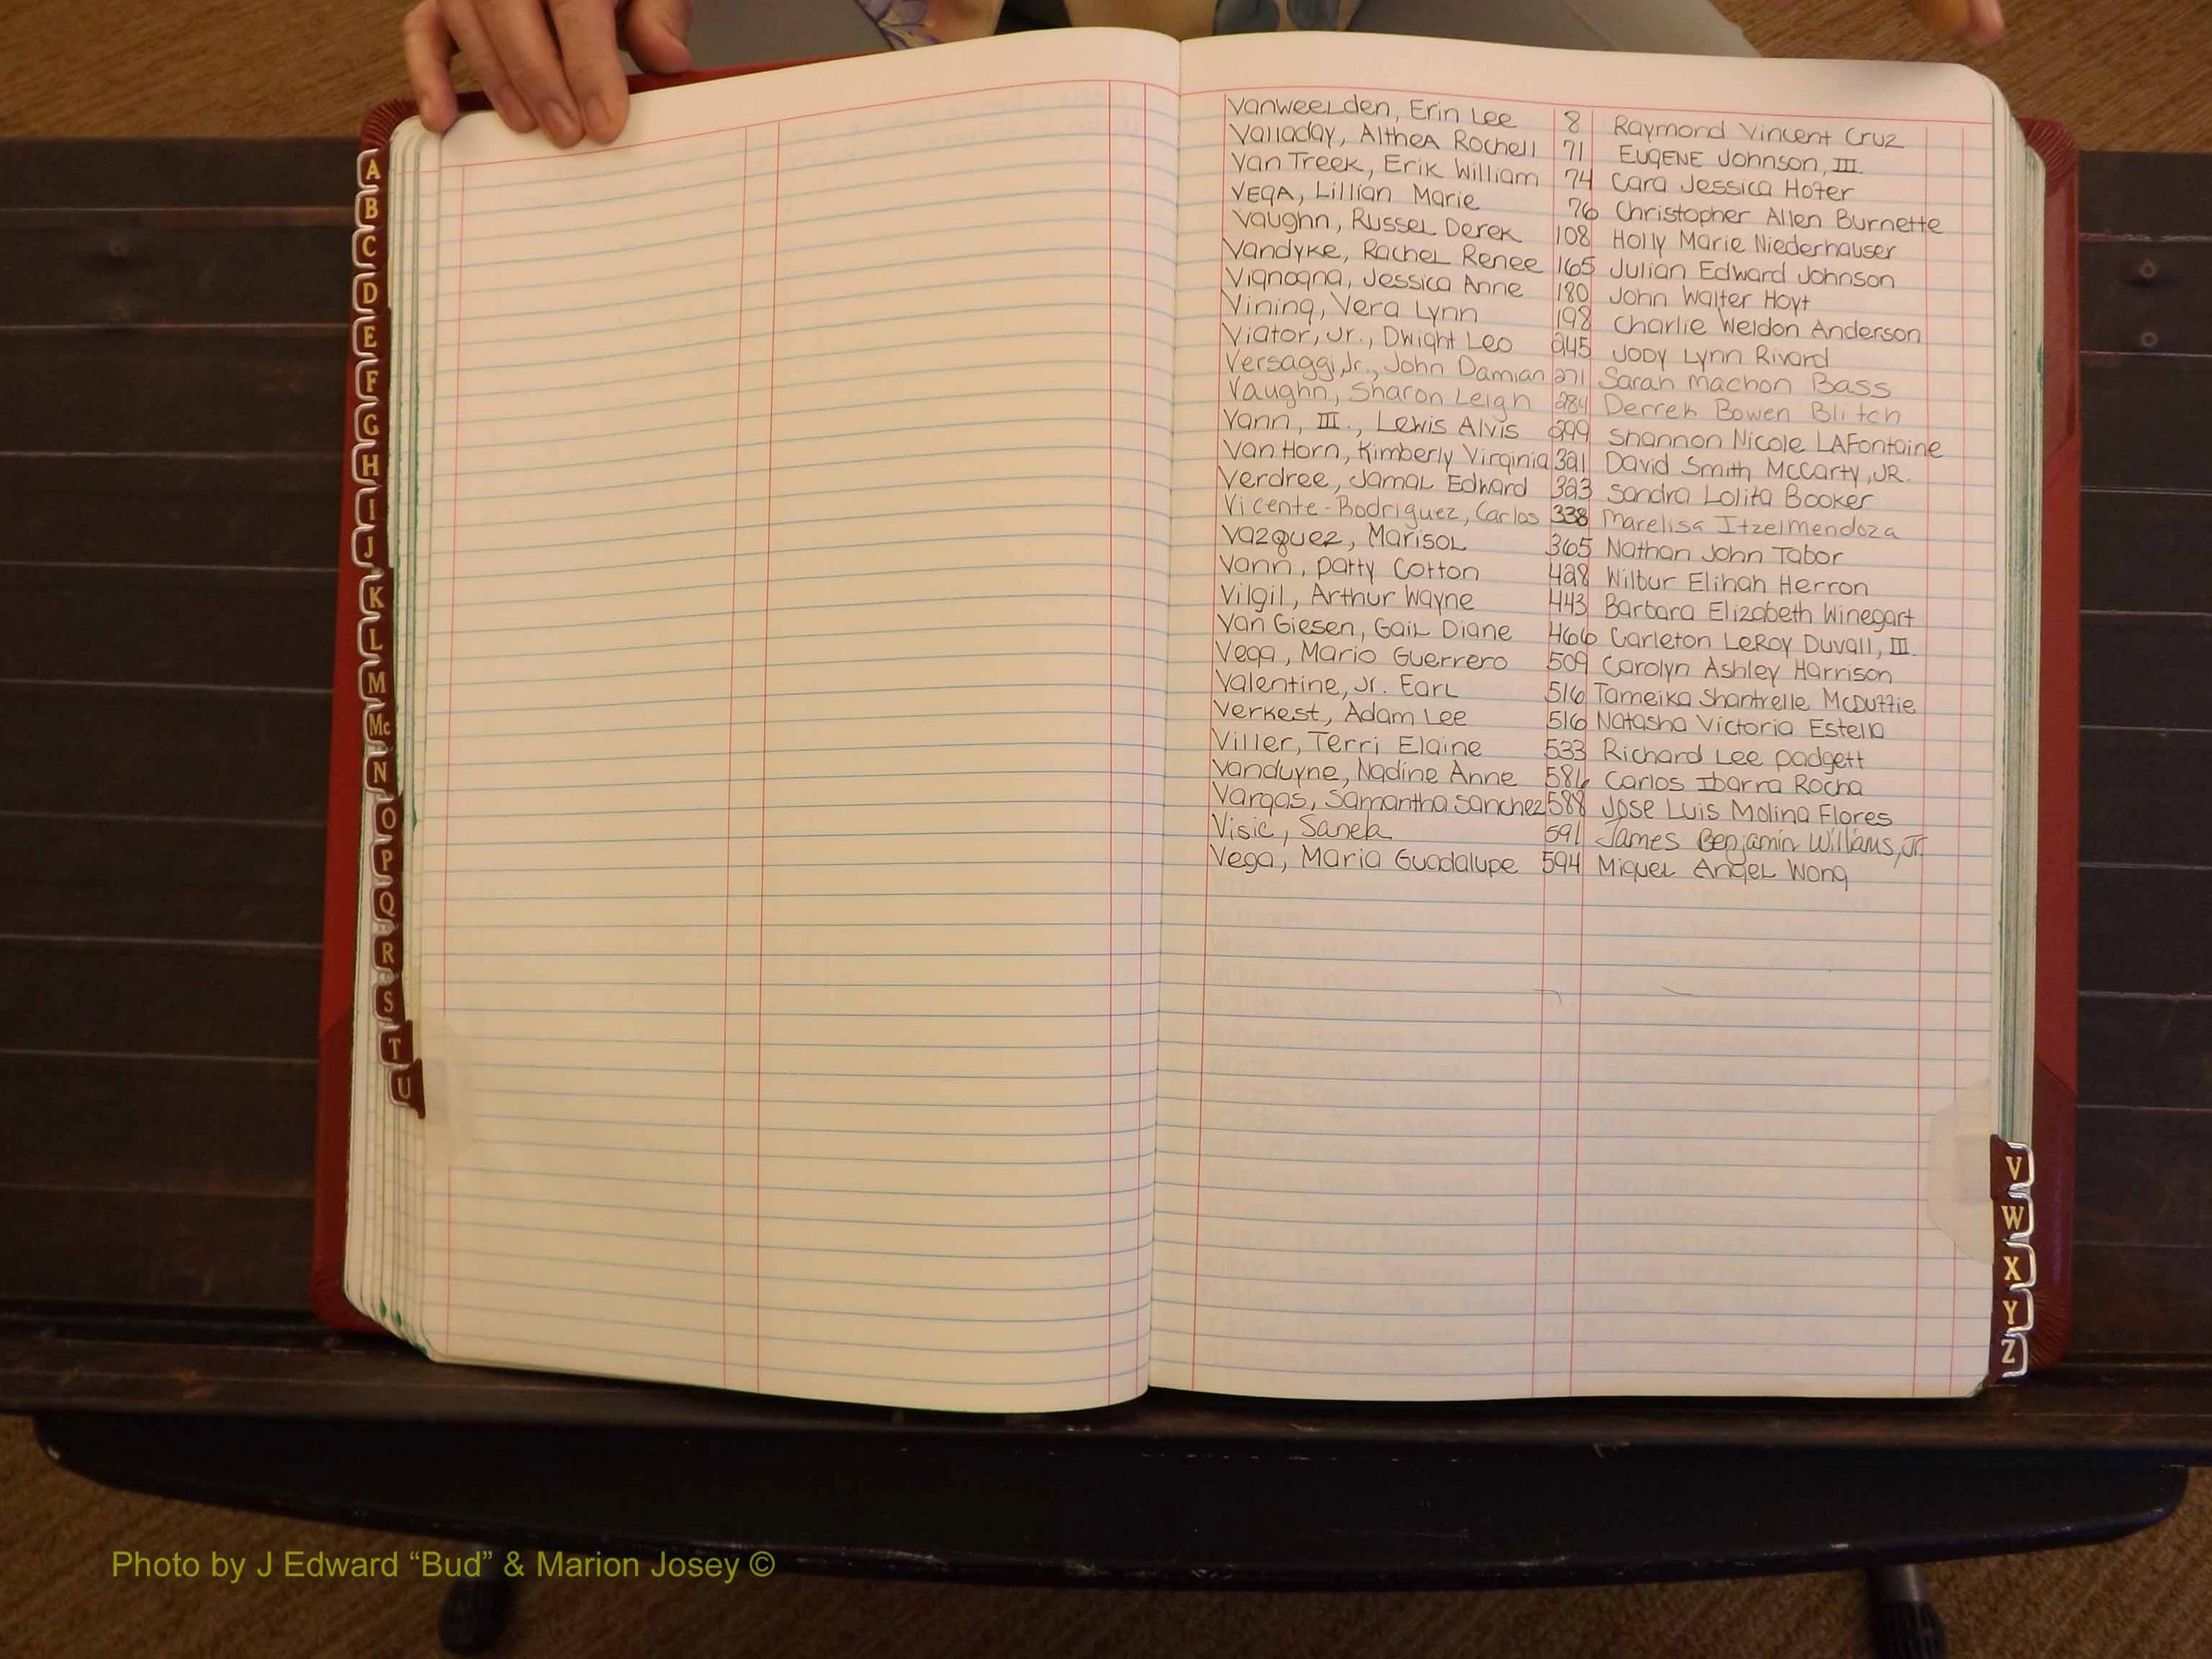 Vanweelden, Erin Lee 8 Raymond Vincent Cruz
Valladay, Althea Rochell 71 Eugene Johnson, III.
Van Treek, Erik William 74 Cara Jessica Hofer
Vega, Lillian Marie 76 Christopher Allen Burnette
Vaughn, Russel Derek 108 Holly Marie Niederhauser
Vandyke, Rachel Renee 165 Julian Edward Johnson
Vignogna, Jessica Anne 180 John Walter Hoyt
Vining, Vera Lynn 198 Charlie Weldon Anderson
Viator, Jr., Dwight Leo 245 Jody Lynn Rivard
Versaggi, Jr., John Damian 271 Sarah Machon Bass
Vaughn, Sharon Leigh 284 Derrek Bowen Blitch
Vann, III., Lewis Alvis 299 Shannon Nicole LaFontaine
Van Horn, Kimberly Virginia 321 David Smith McCarty, JR.
Verdree, Jamal Edward 323 Sandra Lolita Booker
Vicente-Rodriguez, Carlos 338 Marelisa Itzelmendoza
Vazquez, Marisol 365 Nathan John Tabor
Vann, Patty Cotton 428 Wilbur Elihah Herron
Vilgil, Arthur Wayne 443 Barbara Elizabeth Winegart
Van Giesen, Gail Diane 466 Carleton LeRoy Duvall, III.
Vega, Mario Guerrero 509 Carolyn Ashley Harrison
Valentine, Jr. Earl 516 Tameika Shantrelle McDuffie
Verkest, Adam Lee 516 Natasha Victoria Estella
Viller, Terri Elaine 533 Richard Lee Padgett
Vanduyne, Nadine Anne 586 Carlos Ibarra Rocha
Vargas, Samantha Sanchez 588 Jose Luis Molina Flores
Visic, Sanela 591 James Benjamin Williams, Jr.
Vega, Maria Guadalupe 594 Miguel Angel Wong
A
B
C
D
E
F
G
H
I
J
K
L
M
Mc
N
O
P
Q
R
S
T
U
V
W
X
Y
Z
Photo by J Edward “Bud” & Marion Josey ©